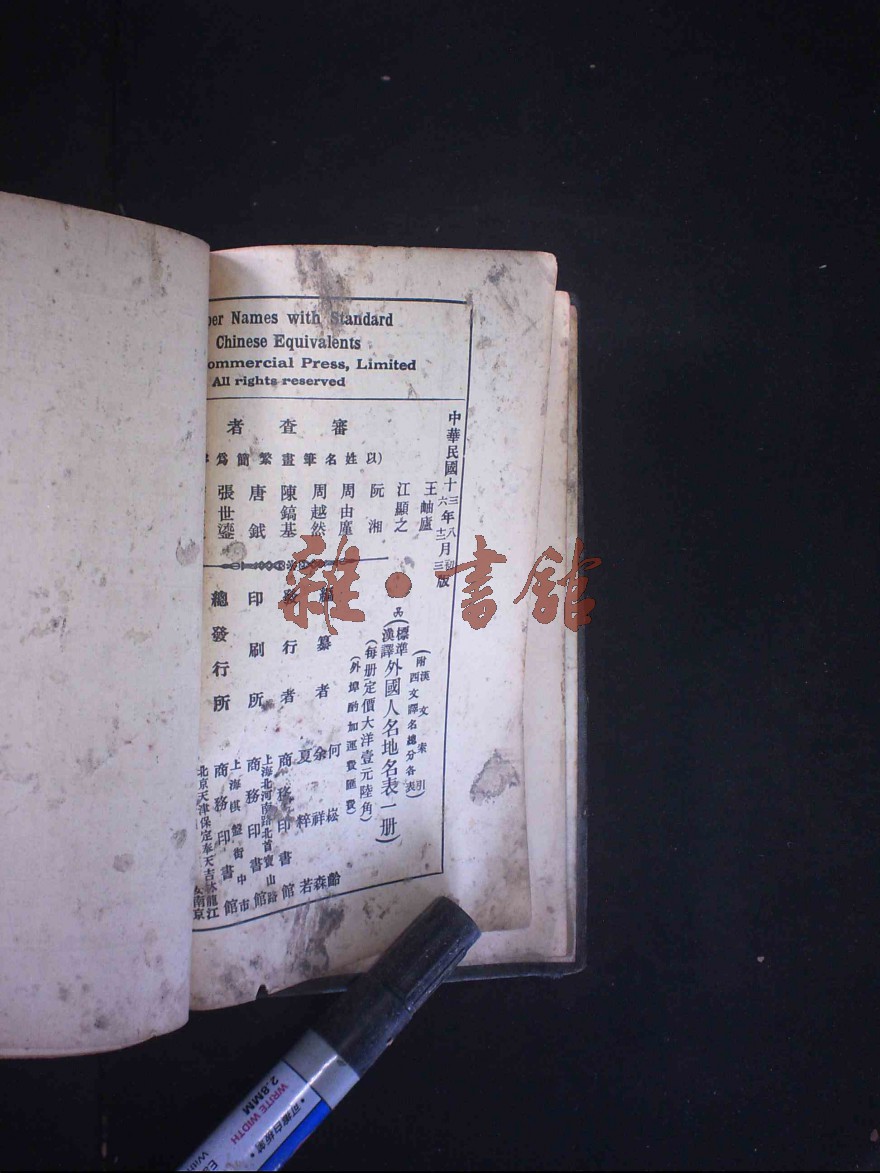 per Names with Standard
Chinese Equivalents
ommercial Press, Limited
All rights reserved
中華民國十三年八月初版
六年十二月三版
(附漢文索引
四文譯名總分各表)
(標準漢譯外國人名地名表一册)
(每册定價大洋壹元陸角)
(外埠酌加運費匯費)
審查者
(以姓名筆畫繁簡爲
王岫廬
江顯之
阮湘
周由廑
周越然
陳鎬基
唐鉞
張世鎏
編纂者
何崧齡
余祥森
夏粹若
發行者
商務印書館
印刷所
上海北河南路北首寶山路
商務印書館
總發行所
上海棋盤街中市
商務印書館
北京天津保定奉天吉林龍江
南京
雜·書館
可擦白板筆
WRITE WIDTH
2.8MM